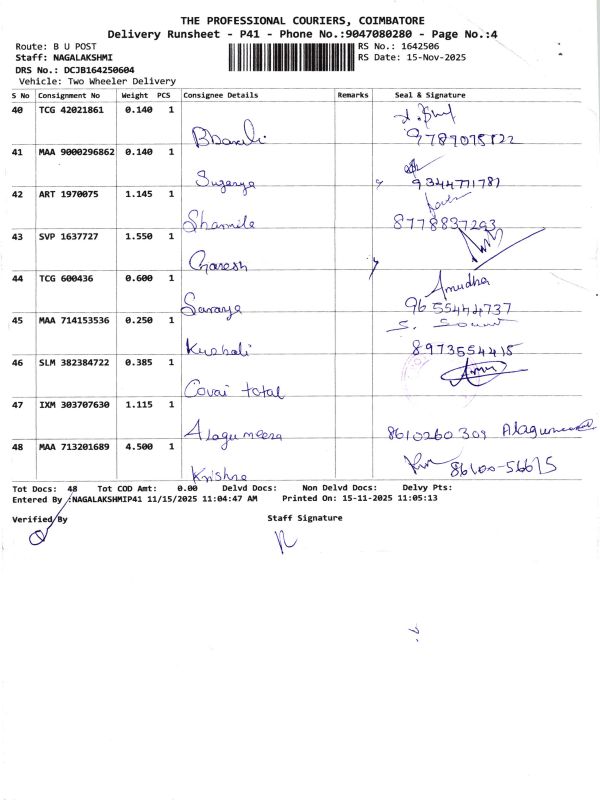 THE PROFESSIONAL COURIERS, COIMBATORE
Delivery Runsheet - P41 - Phone No.:9047080280 - Page No.:4
Route: B U POST
RS No.: 1642506
Staff: NAGALAKSHMI
RS Date: 15-Nov-2025
DRS No.: DCJB164250604
Vehicle: Two Wheeler Delivery
S No Consignment No Weight PCS Consignee Details Remarks Seal & Signature
40 TCG 42021861 0.140 1
Bharali
41 MAA 9000296862 0.140 1
Suganya 9344771781
42 ART 1970075 1.145 1
Shamila 8778837293
43 SVP 1637727 1.550 1
Ganesh
44 TCG 600436 0.600 1 Anudha
Saranya 9655444737
45 MAA 714153536 0.250 1
8973554415
46 SLM 382384722 0.385 1
Covai total
47 IXM 303707630 1.115 1
Alagumeena 8610260309 Alagumeena
48 MAA 713201689 4.500 1
Krishna
Tot Docs: 48 Tot COD Amt: 0.00 Delvd Docs: Non Delvd Docs: Delvy Pts:
Entered By :NAGALAKSHMIP41 11/15/2025 11:04:47 AM Printed On: 15-11-2025 11:05:13
Verified By Staff Signature